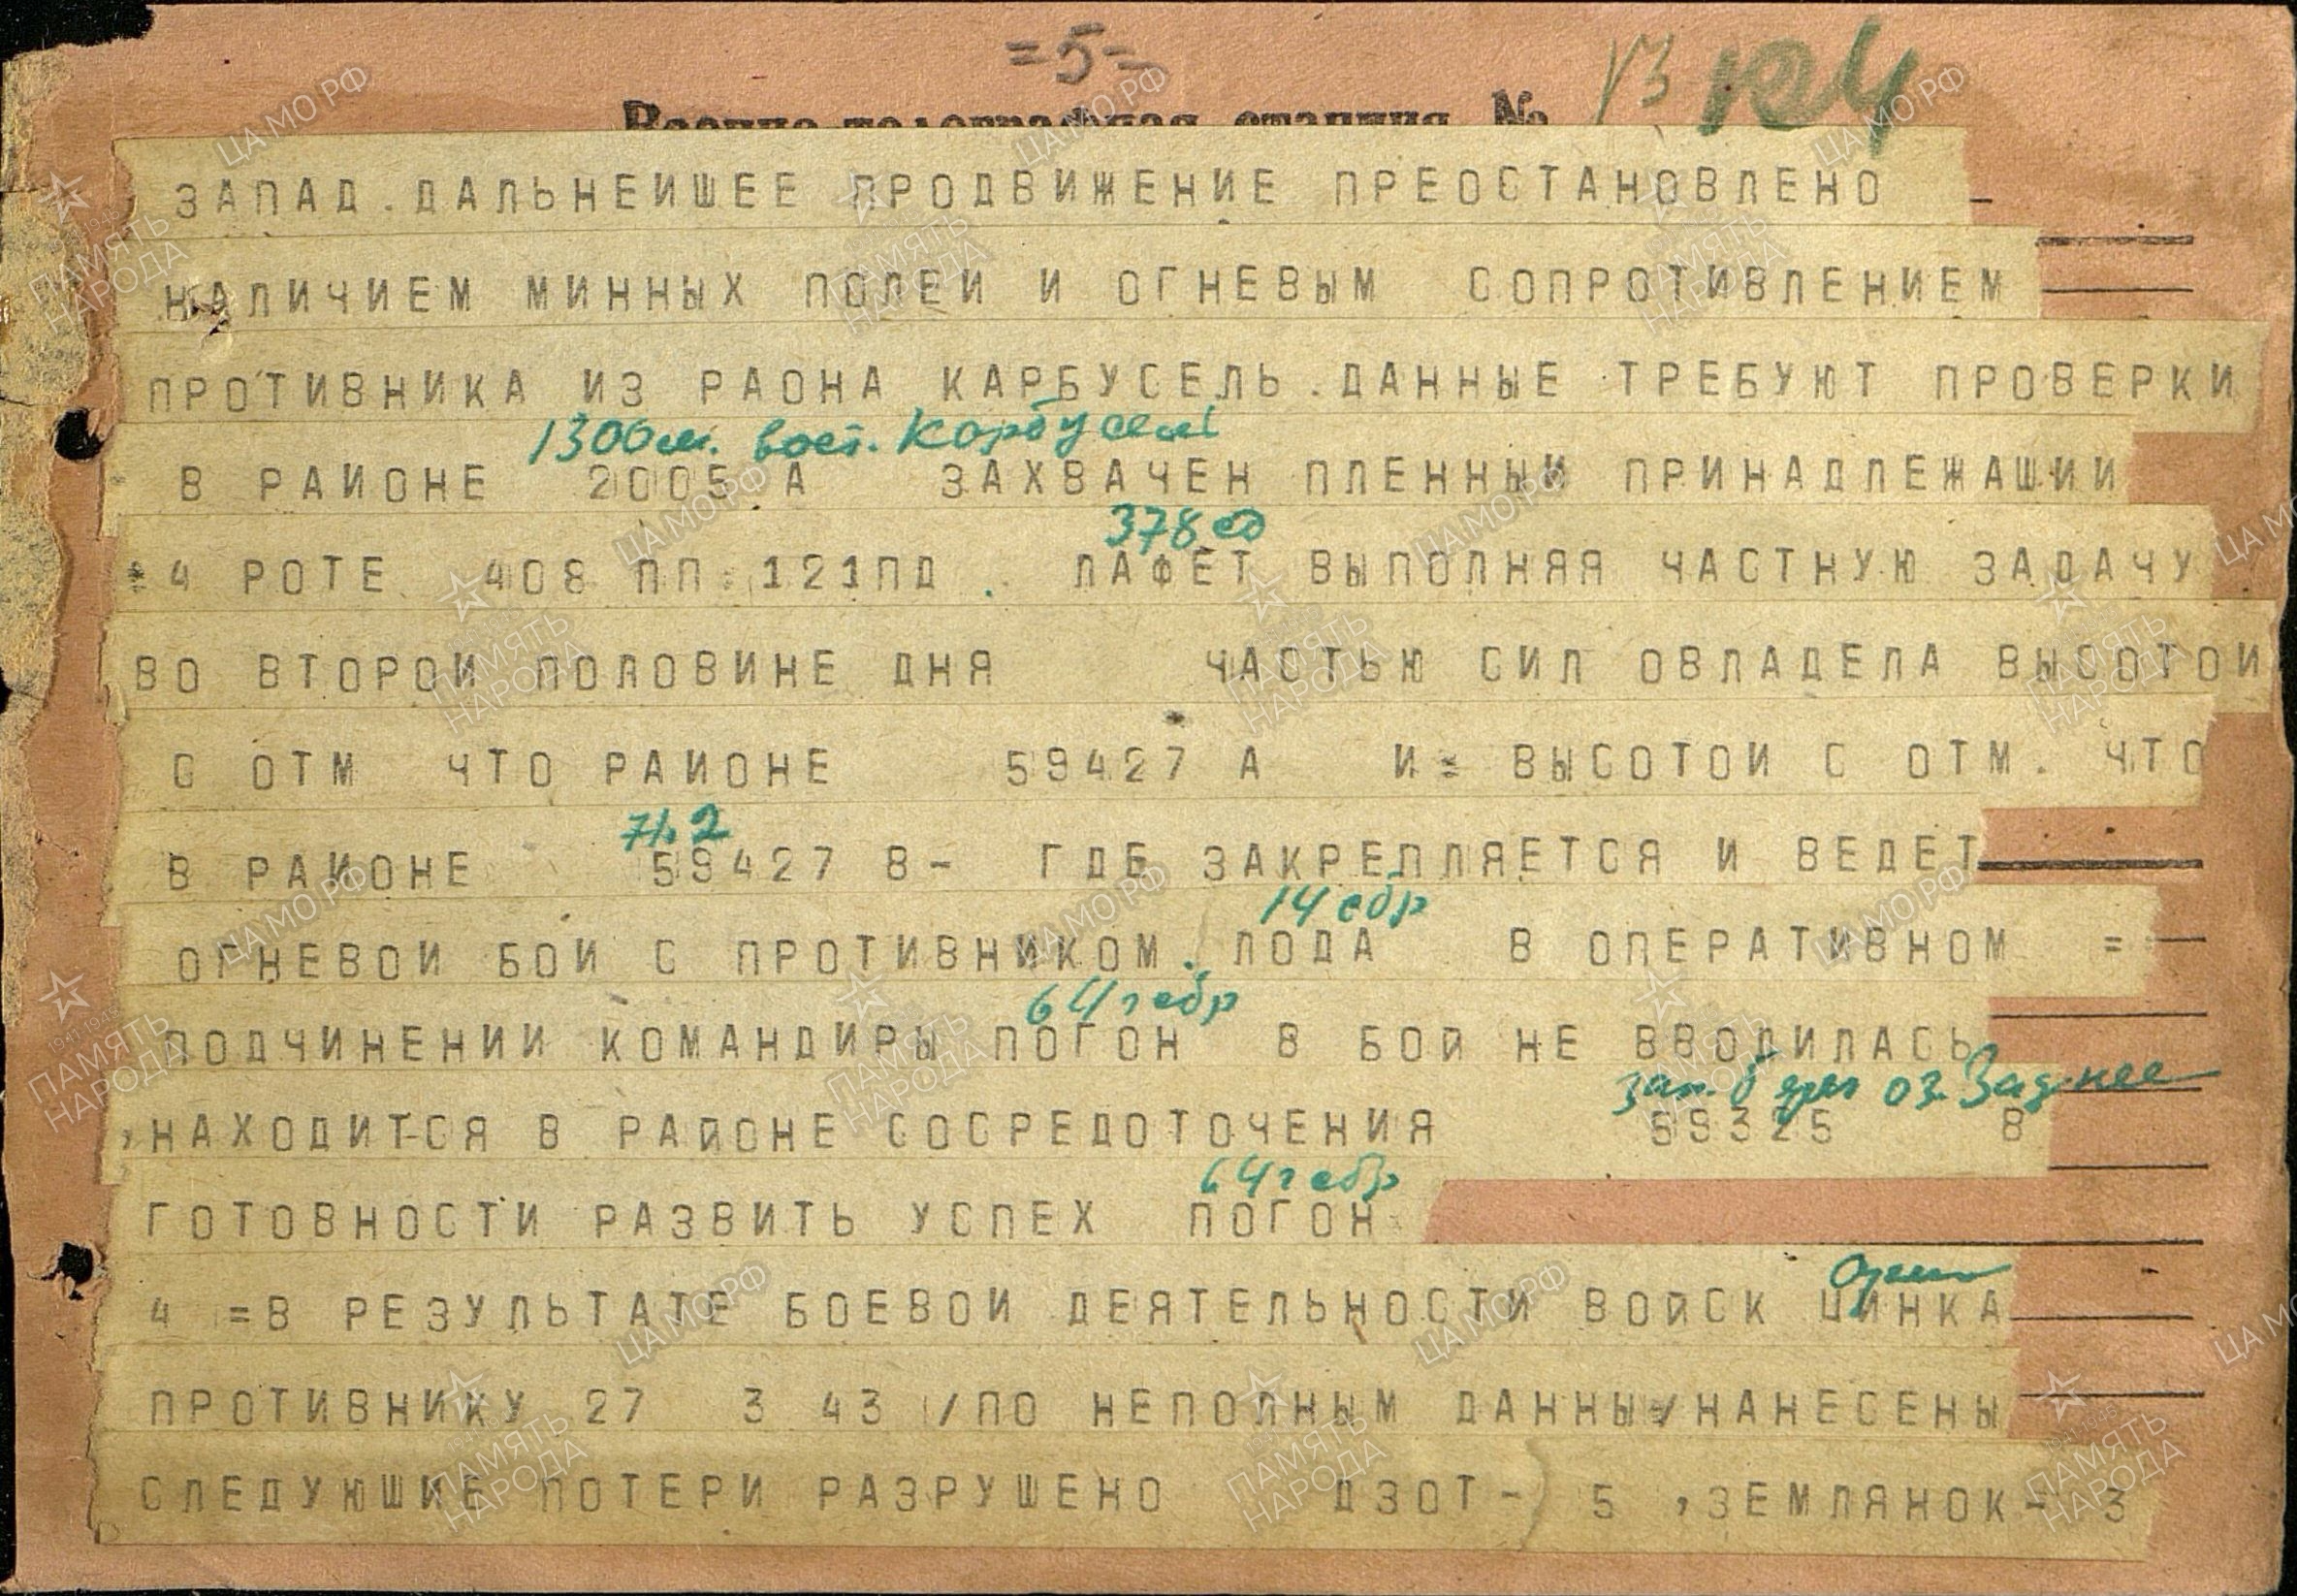 =5-
Военно-телеграфная станция №
ЗАПАД.ДАЛЬНЕИШЕЕ ПРОДВИЖЕНИЕ ПРЕОСТАНОВЛЕНО
НАЛИЧИЕМ МИННЫХ ПОЛЕИ И ОГНЕВЫМ СОПРОТИВЛЕНИЕМ
ПРОТИВНИКА ИЗ РАОНА КАРБУСЕЛЬ.ДАННЫЕ ТРЕБУЮТ ПРОВЕРКИ
1300м. вост. Карбусель
В РАИОНЕ 2005 А ЗАХВАЧЕН ПЛЕННЫИ ПРИНАДЛЕЖАШИИ
378 сд
4 РОТЕ 408 ПП 121ПД . ЛАФЕТ ВЫПОЛНЯЯ ЧАСТНУЮ ЗАДАЧУ
ВО ВТОРОИ ПОЛОВИНЕ ДНЯ ЧАСТЬЮ СИЛ ОВЛАДЕЛА ВЫСОТОИ
С ОТМ ЧТО РАИОНЕ 59427 А И= ВЫСОТОИ С ОТМ. ЧТО
71.2
В РАИОНЕ 59427 В- ГДЕ ЗАКРЕПЛЯЕТСЯ И ВЕДЕТ
14 сбр
ОГНЕВОИ БОИ С ПРОТИВНИКОМ. ЛОДА В ОПЕРАТИВНОМ =
64 гсбр
ПОДЧИНЕНИИ КОМАНДИРЫ ПОГОН В БОИ НЕ ВВОДИЛАСЬ
зап. берег оз. Заднее
,НАХОДИТСЯ В РАИОНЕ СОСРЕДОТОЧЕНИЯ 59325 В
64 гсбр
ГОТОВНОСТИ РАЗВИТЬ УСПЕХ ПОГОН
4 =В РЕЗУЛЬТАТЕ БОЕВОИ ДЕЯТЕЛЬНОСТИ ВОИСК ЦИНКА
ПРОТИВНИКУ 27 3 43 /ПО НЕПОЛНЫМ ДАННЫ/НАНЕСЕНЫ
СЛЕДУЮШИЕ ПОТЕРИ РАЗРУШЕНО ДЗОТ- 5 ,ЗЕМЛЯНОК- 3
ЦА МО РФ
ПАМЯТЬ НАРОДА